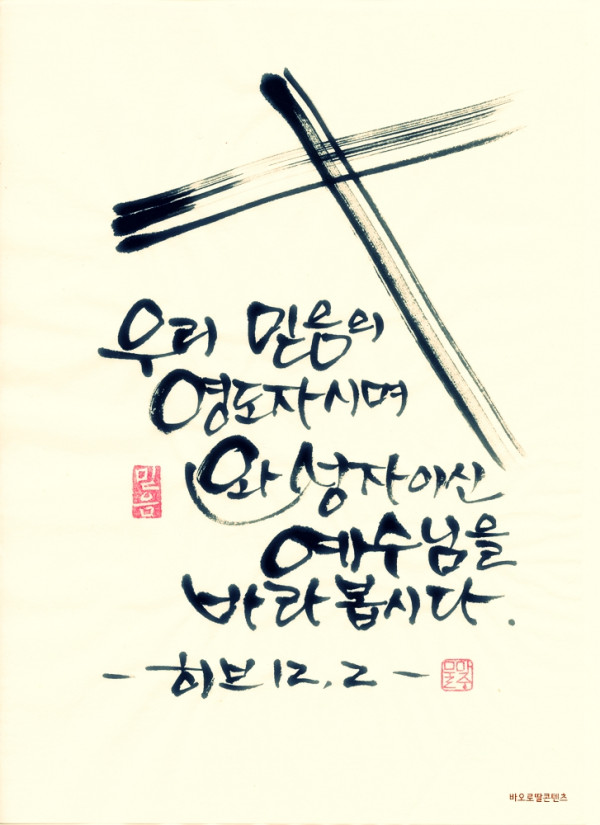 우리 믿음의
영도자시며
완성자이신
믿음
예수님을
바라봅시다.
- 히브 12, 2 -
마중물
바오로딸콘텐츠